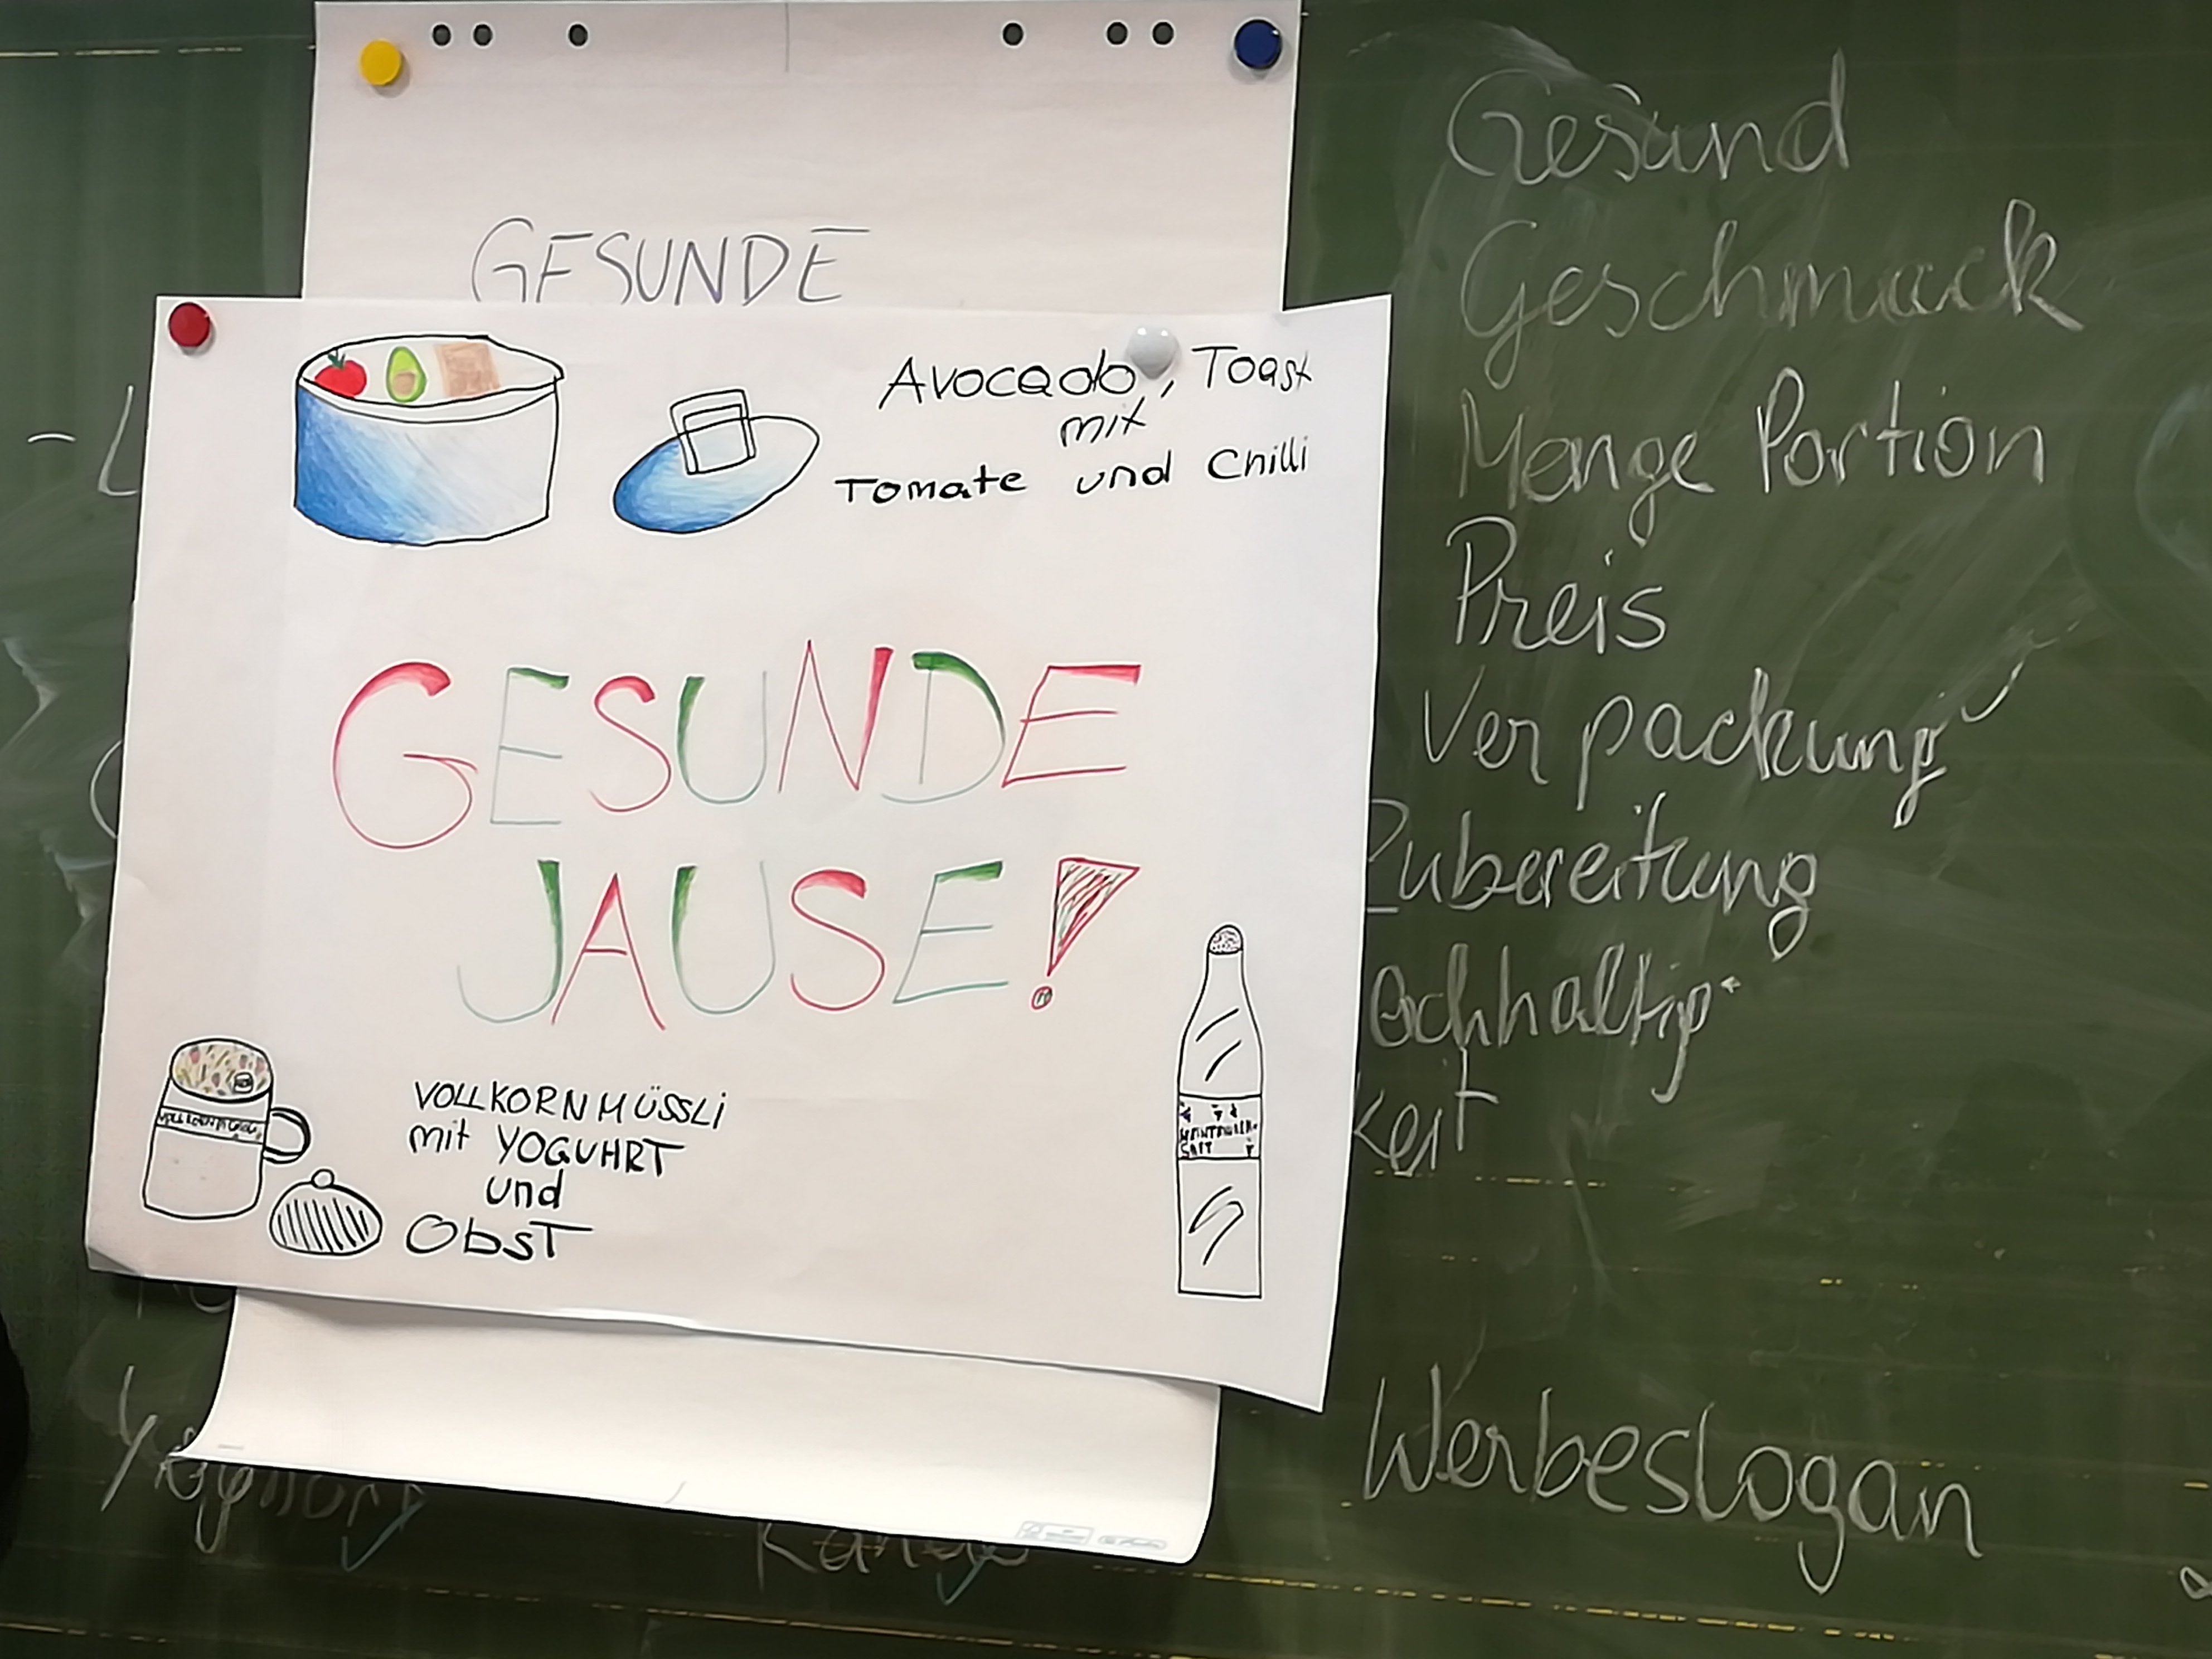 GESUNDE
Avocado, Toast
mit
Tomate und Chilli
GESUNDE
JAUSE!
VOLLKORNMÜSSLI
mit YOGUHRT
und
Obst
Gesund
Geschmack
Menge Portion
Preis
Verpackung
Zubereitung
achhaltig-
keit
Werbeslogan